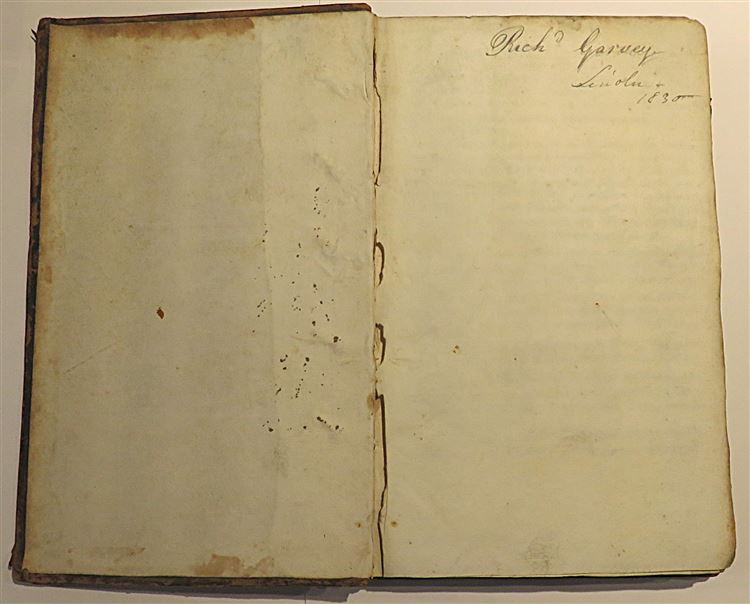 Richd Garvey
Lincoln
1830